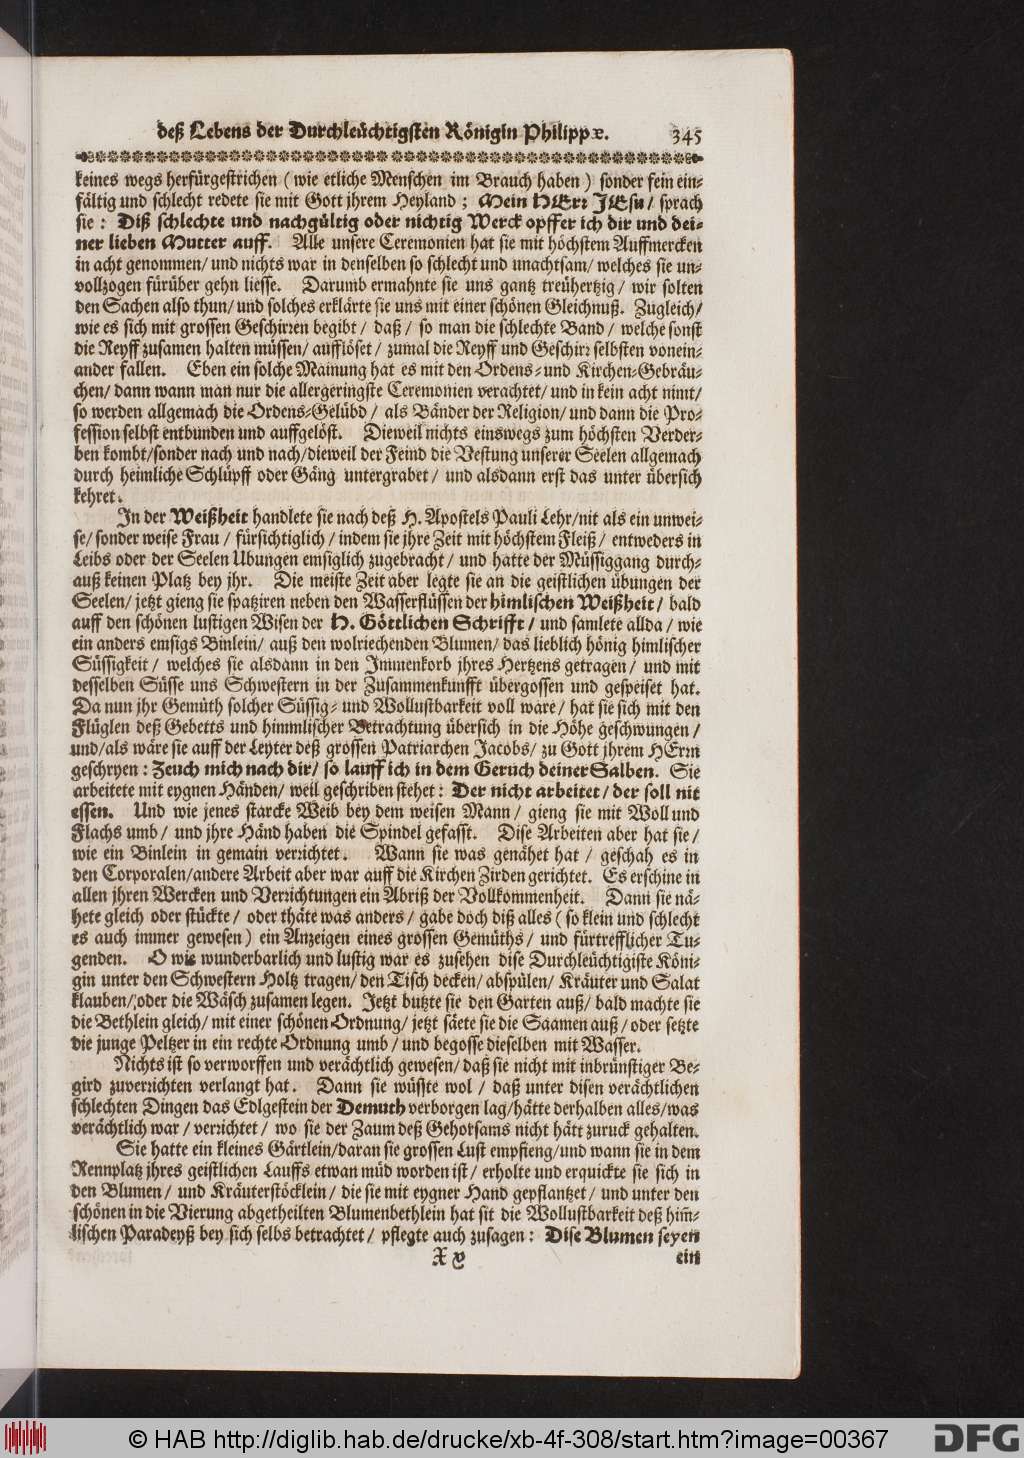 deß Lebens der Durchleüchtigsten Königin Philippæ. 345
keines wegs herfürgestrichen (wie etliche Menschen im Brauch haben) sonder fein ein-
fältig und schlecht redete sie mit Gott jhrem Heyland; Mein HErr JEsu/ sprach
sie: Diß schlechte und nachgültig oder nichtig Werck opffer ich dir und dei-
ner lieben Mutter auff. Alle unsere Ceremonien hat sie mit höchstem Auffmercken
in acht genommen/ und nichts war in denselben so schlecht und unachtsam/ welches sie un-
vollzogen fürüber gehn liesse. Darumb ermahnte sie uns gantz treühertzig/ wir solten
den Sachen also thun/ und solches erklärte sie uns mit einer schönen Gleichnuß. Zugleich/
wie es sich mit grossen Geschirren begibt/ daß/ so man die schlechte Band/ welche sonst
die Reyff zusamen halten müssen/ aufflöset/ zumal die Reyff und Geschirr selbsten vonein-
ander fallen. Eben ein solche Mainung hat es mit den Ordens- und Kirchen-Gebräu-
chen/ dann wann man nur die allergeringste Ceremonien verachtet/ und in kein acht nimt/
so werden allgemach die Ordens-Gelübd/ als Bänder der Religion/ und dann die Pro-
fession selbst entbunden und auffgelöst. Dieweil nichts einswegs zum höchsten Verder-
ben kombt/ sonder nach und nach/ dieweil der Feind die Vestung unserer Seelen allgemach
durch heimliche Schlüpff oder Gäng untergrabet/ und alsdann erst das unter übersich
kehret.
In der Weißheit handlete sie nach deß H. Apostels Pauli Lehr/ nit als ein unwei-
se/ sonder weise Frau/ fürsichtiglich/ indem sie jhre Zeit mit höchstem Fleiß/ entweders in
Leibs oder der Seelen Ubungen emsiglich zugebracht/ und hatte der Müssiggang durch-
auß keinen Platz bey jhr. Die meiste Zeit aber legte sie an die geistlichen übungen der
Seelen/ jetzt gieng sie spatziren neben den Wasserflüssen der himlischen Weißheit/ bald
auff den schönen lustigen Wisen der H. Göttlichen Schrifft/ und samlete allda/ wie
ein anders emsigs Binlein/ auß den wolriechenden Blumen/ das lieblich hönig himlischer
Süssigkeit/ welches sie alsdann in den Immenkorb jhres Hertzens getragen/ und mit
desselben Süsse uns Schwestern in der Zusammenkunfft übergossen und gespeiset hat.
Da nun jhr Gemüth solcher Süssig- und Wollustbarkeit voll ware/ hat sie sich mit den
Flüglen deß Gebetts und himmlischer Betrachtung übersich in die Höhe geschwungen/
und/ als wäre sie auff der Leyter deß grossen Patriarchen Jacobs/ zu Gott jhrem HErrn
geschryen: Zeuch mich nach dir/ so lauff ich in dem Geruch deiner Salben. Sie
arbeitete mit eygnen Händen/ weil geschriben stehet: Der nicht arbeitet/ der soll nit
essen. Und wie jenes starcke Weib bey dem weisen Mann/ gieng sie mit Woll und
Flachs umb/ und jhre Händ haben die Spindel gefasst. Dise Arbeiten aber hat sie/
wie ein Binlein in gemain verrichtet. Wann sie was genähet hat/ geschah es in
den Corporalen/ andere Arbeit aber war auff die Kirchen Zirden gerichtet. Es erschine in
allen jhren Wercken und Verrichtungen ein Abriß der Vollkommenheit. Dann sie nä-
hete gleich oder stückte/ oder thäte was anders/ gabe doch diß alles (so klein und schlecht
es auch immer gewesen) ein Anzeigen eines grossen Gemüths/ und fürtrefflicher Tu-
genden. O wie wunderbarlich und lustig war es zusehen dise Durchleüchtigiste Köni-
gin unter den Schwestern Holtz tragen/ den Tisch decken/ abspülen/ Kräuter und Salat
klauben/ oder die Wäsch zusamen legen. Jetzt butzte sie den Garten auß/ bald machte sie
die Bethlein gleich/ mit einer schönen Ordnung/ jetzt säete sie die Saamen auß/ oder setzte
die junge Peltzer in ein rechte Ordnung umb/ und begosse dieselben mit Wasser.
Nichts ist so verworffen und verächtlich gewesen/ daß sie nicht mit inbrünstiger Be-
gird zuverrichten verlangt hat. Dann sie wüste wol/ daß unter disen verächtlichen
schlechten Dingen das Edlgestein der Demuth verborgen lag/ hätte derhalben alles/ was
verächtlich war/ verrichtet/ wo sie der Zaum deß Gehorsams nicht hätt zuruck gehalten.
Sie hatte ein kleines Gärtlein/ daran sie grossen Lust empfieng/ und wann sie in dem
Rennplatz jhres geistlichen Lauffs etwan müd worden ist/ erholte und erquickte sie sich in
den Blumen/ und Kräuterstöcklein/ die sie mit eygner Hand gepflantzet/ und unter den
schönen in die Vierung abgetheilten Blumenbethlein hat sit die Wollustbarkeit deß him̃-
lischen Paradeyß bey sich selbs betrachtet/ pflegte auch zusagen: Dise Blumen seyen
X x ein
© HAB http://diglib.hab.de/drucke/xb-4f-308/start.htm?image=00367
DFG